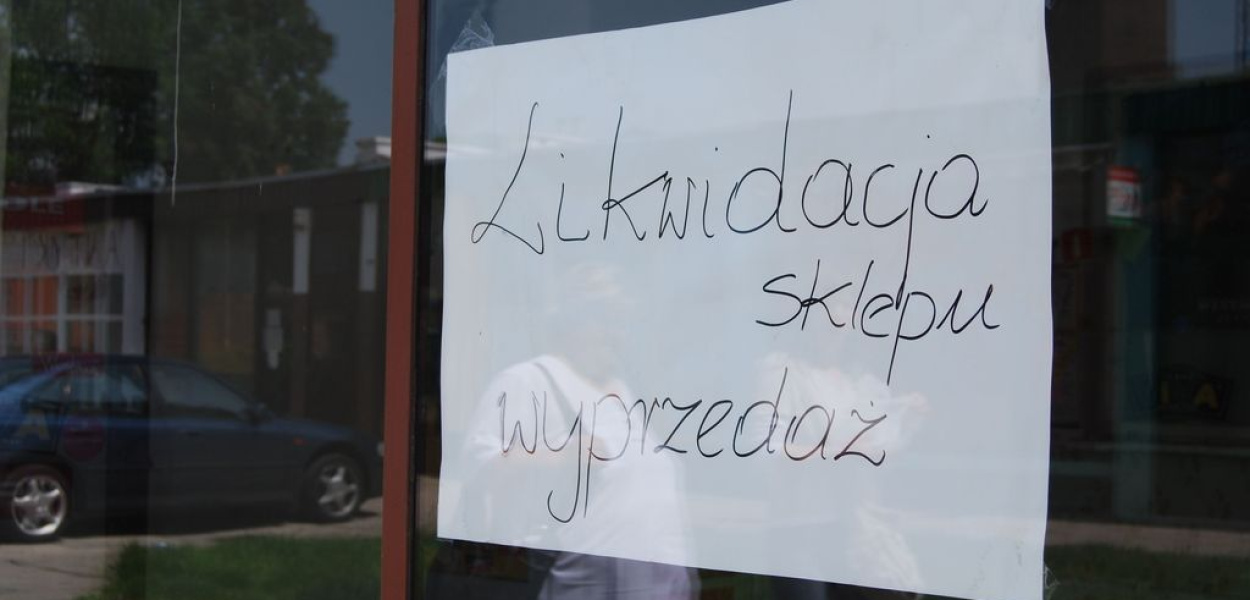 Likwidacja
sklepu
wyprzedaż